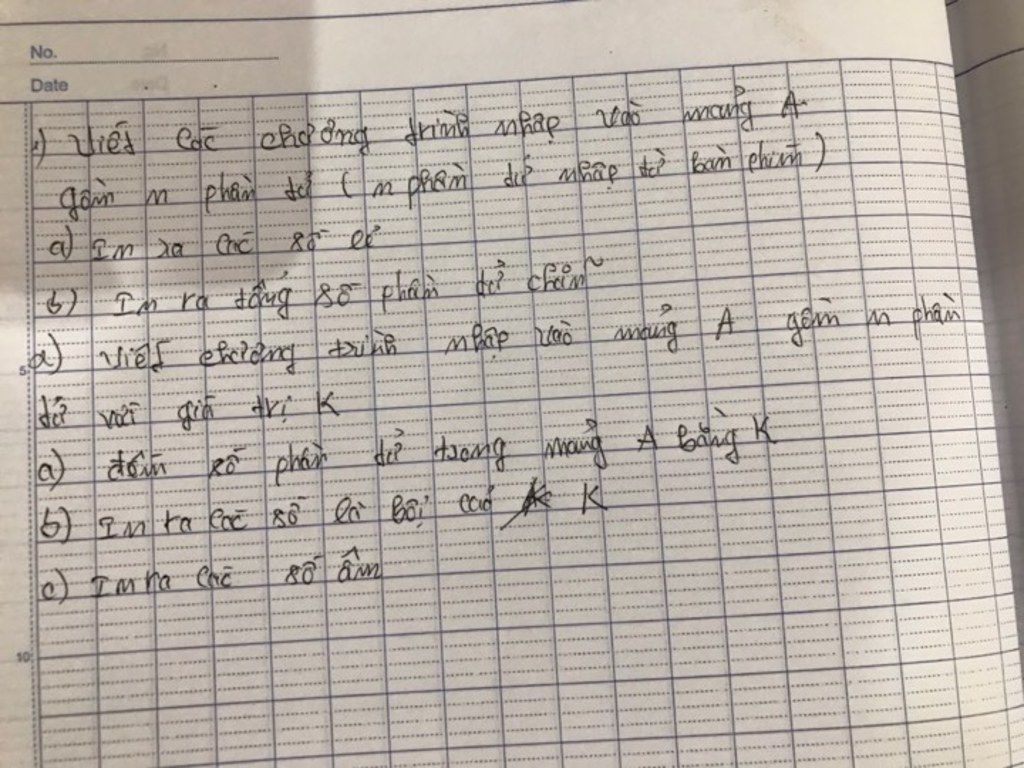 No.
Date
1) Viết các chương trình nhập vào mảng A
gồm n phần tử ( n phần tử nhập từ bàn phím )
a) In ra các số lẻ
b) In ra tổng số phần tử chẵn
5
2) Viết chương trình nhập vào mảng A gồm n phần
tử với giá trị K
a) đếm số phần tử trong mảng A bằng K
b) In ra các số là bội của K
c) In ra các số âm
10